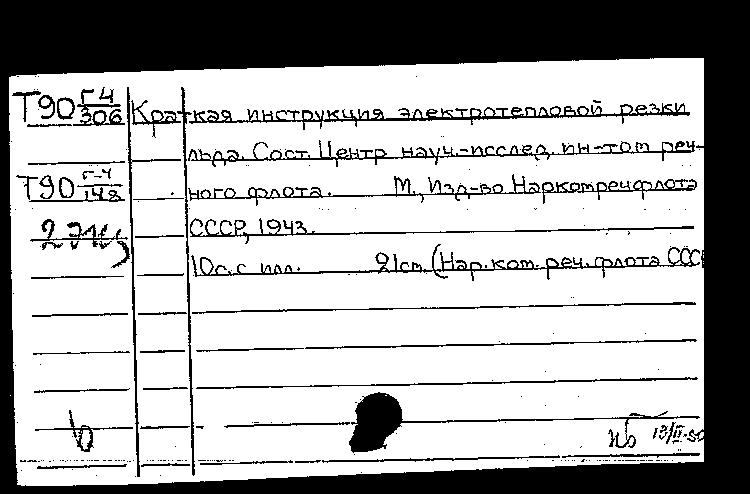 Т90 Г-4/306 Краткая инструкция электротепловой резки
льда. Сост. Центр науч.-исслед. ин-том реч-
Т90 Г-4/148 ного флота. М., Изд-во Наркомречфлота
2 экз СССР, 1943.
10с. с илл. 21см. (Нар. ком. реч. флота СССР
13/II-50